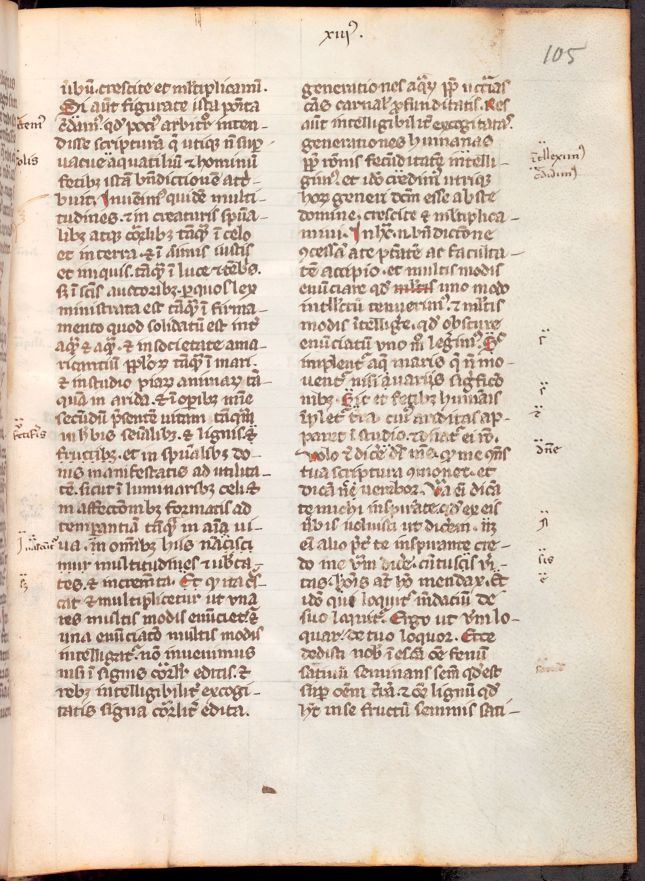 xiijꝰ.
105
ūbū. crescite et mltiplicamī.
Si aūt figurate ista poīta
intēn-
disse scripturā q̄ utiqꝫ nō suꝑ
vacue aquatiliū ⁊ hominū
fetibꝫ istā bn̄dictionē att̄-
buit. Inuenimꝰ quidē multi-
tudines. ⁊ in creaturis spūa-
libꝫ atqꝫ corꝑlibꝫ tāqͣ ī celo
et in terra. ⁊ ī aīmis iustis
et iniquis. tāqͣ ī luce ⁊ tēbrˀ.
⁊ ī scīs auctoribꝫ. ꝑ quos lex
ministrata est tāqͣ ī firma-
mento quod solidatū est int̄
aqͣs ⁊ aqͣs. ⁊ in societate ama-
ricantiū pplōꝝ tāqͣ ī mari.
⁊ in studio piaꝝ animaꝝ tā-
quā in arida. ⁊ ī oꝑibꝫ mīe
secūdū p̄sentē vitam tāqͣ ī
hˀbis seīalibꝫ. ⁊ lignis
fructibꝫ. et in spūalibꝫ do-
nis manifestatis ad utilita-
tē. sicut ī luminaribꝫ celi. ⁊
in affectionibꝫ formatis ad
temꝑantiā tāqͣ ī aīa vi-
ua. in omībꝫ hiis nācisci
mur multitudines ⁊ ub̄ta-
tes. ⁊ incremēta. Et qͥ ita cˀs
cat ⁊ multiplicetur ut vna
res multis modis enūcietˀ. ⁊
una enūciatō multis modis
intelligatˀ. nō inuenimus
nisi ī signis corꝑlitˀ editis. ⁊
rebꝫ intelligibilitˀ excogi-
tatis signa corꝑlitˀ edita.
generationes aqͣꝝ ꝓpt̄
cās carnalˀ ꝓfūditatis. Res
aūt intelligibilitˀ excogitatas
generationes humanas
ꝓpt̄ rōnis fecūditatē intelli-
gimꝰ. et idō credimꝰ utriqꝫ
hoꝝ generi dcm̄ esse abs te
domine. crescite ⁊ mltiplica-
mini. In hac n̄ bn̄dictione
ꝯcessā a te ptātē ac faculta-
tē accipio. et multis modis
enūciare qd̄ uno modo
intllctū tenuerimꝰ. ⁊ mltis
modis ītelligˀe. qd̄ obscure
enūciatū uno mō legimꝰ. Sic
implent̄ aqͣ maris q̄ nō mo-
vent̄ nisi ī variis sigficō
nibꝫ. Sic et fetibꝫ humāis
īplet̄ t̄ra. cuiꝰ ariditas ap-
paret ī studio. ⁊ dn̄at̄ ei rō.
Volo ⁊ dicˀe dn̄e mˀs. qͥ me ꝯ̄ns
tua scriptura ꝯmonet. et
dicā nec verebor. Vˀa eī dicā
te michi inspirāte. qd̄ ex eis
ūbis uoluisti ut dicˀem. neqꝫ
eī alio p̄ter te inspirante cre-
do me vˀm dicˀe. cū tu sis vˀi-
tas. hōis aūt hō mendax. Et
idō qui loquitˀ mˀdaciū de
suo loquitˀ. Ergo ut vˀm lo-
quar. de tuo loquor. Ecce
dedisti nobˀ ī escā ōe fenū
satiuū seminans sem̄ qd̄ est
suꝑ oēm t̄rā. ⁊ ōe lignū qd̄
hˀt in se fructū seminis sati-
ītellexim̄ꝰ
crˀdidim̄ꝰ
dn̄e